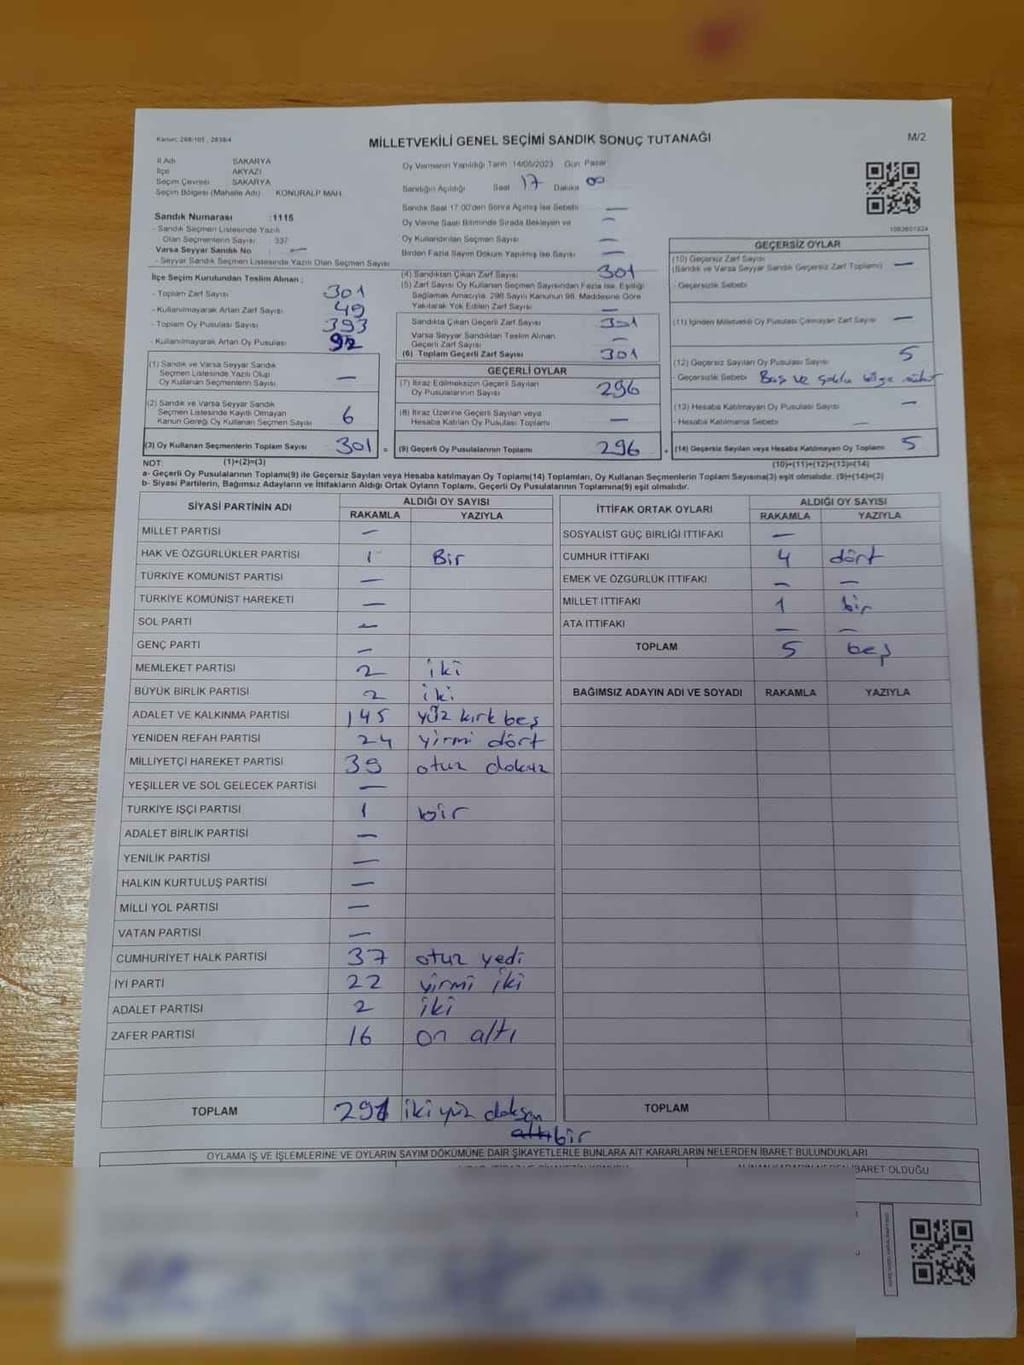 Kanun: 298/105, 2839/4
MİLLETVEKİLİ GENEL SEÇİMİ SANDIK SONUÇ TUTANAĞI
M/2
İl Adı SAKARYA
İlçe AKYAZI
Seçim Çevresi SAKARYA
Seçim Bölgesi (Mahalle Adı) KONURALP MAH.
Sandık Numarası :1115
- Sandık Seçmen Listesinde Yazılı
Olan Seçmenlerin Sayısı 337
Varsa Seyyar Sandık No : —
- Seyyar Sandık Seçmen Listesinde Yazılı Olan Seçmen Sayısı
Oy Vermenin Yapıldığı Tarih 14/05/2023 Gün Pazar
Sandığın Açıldığı Saat 17 Dakika 00
Sandık Saat 17:00'den Sonra Açılmış İse Sebebi —
Oy Verme Saati Bitiminde Sırada Bekleyen ve —
Oy Kullandırılan Seçmen Sayısı —
Birden Fazla Sayım Döküm Yapılmış İse Sayısı —
İlçe Seçim Kurulundan Teslim Alınan ;
- Toplam Zarf Sayısı 301
- Kullanılmayarak Artan Zarf Sayısı 49
- Toplam Oy Pusulası Sayısı 393
- Kullanılmayarak Artan Oy Pusulası 92
(1) Sandık ve Varsa Seyyar Sandık
Seçmen Listesinde Yazılı Olup
Oy Kullanan Seçmenlerin Sayısı —
(2) Sandık ve Varsa Seyyar Sandık
Seçmen Listesinde Kayıtlı Olmayan
Kanun Gereği Oy Kullanan Seçmen Sayısı 6
(3) Oy Kullanan Seçmenlerin Toplam Sayısı 301
(4) Sandıktan Çıkan Zarf Sayısı 301
(5) Zarf Sayısı Oy Kullanan Seçmen Sayısından Fazla İse, Eşitliği
Sağlamak Amacıyla, 298 Sayılı Kanunun 98. Maddesine Göre
Yakılarak Yok Edilen Zarf Sayısı —
Sandıkta Çıkan Geçerli Zarf Sayısı 301
Varsa Seyyar Sandıktan Teslim Alınan
Geçerli Zarf Sayısı —
(6) Toplam Geçerli Zarf Sayısı 301
GEÇERLİ OYLAR
(7) İtiraz Edilmeksizin Geçerli Sayılan
Oy Pusulalarının Sayısı 296
(8) İtiraz Üzerine Geçerli Sayılan veya
Hesaba Katılan Oy Pusulası Toplamı —
(9) Geçerli Oy Pusulalarının Toplamı 296
GEÇERSİZ OYLAR
(10) Geçersiz Zarf Sayısı
(Sandık ve Varsa Seyyar Sandık Geçersiz Zarf Toplamı) —
- Geçersizlik Sebebi
(11) İçinden Milletvekili Oy Pusulası Çıkmayan Zarf Sayısı —
(12) Geçersiz Sayılan Oy Pusulası Sayısı 5
- Geçersizlik Sebebi Boş ve
(13) Hesaba Katılmayan Oy Pusulası Sayısı —
- Hesaba Katılmama Sebebi —
(14) Geçersiz Sayılan veya Hesaba Katılmayan Oy Toplamı 5
NOT: (1)+(2)=(3) (10)+(11)+(12)+(13)=(14)
a- Geçerli Oy Pusulalarının Toplamı(9) ile Geçersiz Sayılan veya Hesaba katılmayan Oy Toplamı(14) Toplamları, Oy Kullanan Seçmenlerin Toplam Sayısına(3) eşit olmalıdır. (9)+(14)=(3)
b- Siyasi Partilerin, Bağımsız Adayların ve İttifakların Aldığı Ortak Oyların Toplamı, Geçerli Oy Pusulalarının Toplamına(9) eşit olmalıdır.
SİYASİ PARTİNİN ADI ALDIĞI OY SAYISI
RAKAMLA YAZIYLA
MİLLET PARTİSİ —
HAK VE ÖZGÜRLÜKLER PARTİSİ 1 Bir
TÜRKİYE KOMÜNİST PARTİSİ —
TÜRKİYE KOMÜNİST HAREKETİ —
SOL PARTİ —
GENÇ PARTİ —
MEMLEKET PARTİSİ 2 iki
BÜYÜK BİRLİK PARTİSİ 2 iki
ADALET VE KALKINMA PARTİSİ 145 yüz kırk beş
YENİDEN REFAH PARTİSİ 24 yirmi dört
MİLLİYETÇİ HAREKET PARTİSİ 39 otuz dokuz
YEŞİLLER VE SOL GELECEK PARTİSİ —
TÜRKİYE İŞÇİ PARTİSİ 1 bir
ADALET BİRLİK PARTİSİ —
YENİLİK PARTİSİ —
HALKIN KURTULUŞ PARTİSİ —
MİLLİ YOL PARTİSİ —
VATAN PARTİSİ —
CUMHURİYET HALK PARTİSİ 37 otuz yedi
İYİ PARTİ 22 yirmi iki
ADALET PARTİSİ 2 iki
ZAFER PARTİSİ 16 on altı
TOPLAM 291 iki yüz doksan
altı bir
İTTİFAK ORTAK OYLARI ALDIĞI OY SAYISI
RAKAMLA YAZIYLA
SOSYALİST GÜÇ BİRLİĞİ İTTİFAKI —
CUMHUR İTTİFAKI 4 dört
EMEK VE ÖZGÜRLÜK İTTİFAKI — —
MİLLET İTTİFAKI 1 bir
ATA İTTİFAKI — —
TOPLAM 5 beş
BAĞIMSIZ ADAYIN ADI VE SOYADI RAKAMLA YAZIYLA
TOPLAM
OYLAMA İŞ VE İŞLEMLERİNE VE OYLARIN SAYIM DÖKÜMÜNE DAİR ŞİKAYETLERLE BUNLARA AİT KARARLARIN NELERDEN İBARET BULUNDUKLARI
İBARET OLDUĞU